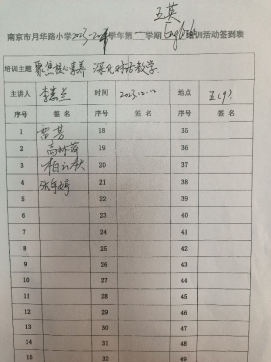 五英
南京市月华路小学2023-2024学年第一学期English培训活动签到表
培训主题 聚焦核心素养 深化对话教学
主讲人 李
时间 2023.12.12
地点 五
序号 签名 序号 签名 序号 签名
1 苗芳 18 35
2 高 19 36
3 柏 秋 20 37
4 张 婷 21 38
5 22 39
6 23 40
7 24 41
8 25 42
9 26 43
10 27 44
11 28 45
12 29 46
13 30 47
14 31 48
15 32 49